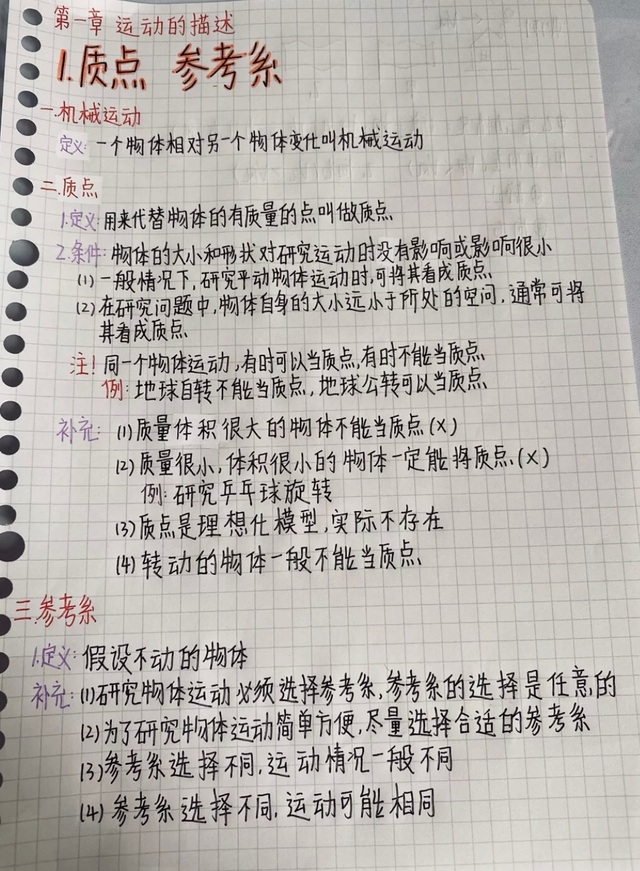 第一章 运动的描述
1.质点 参考系
一.机械运动
定义:一个物体相对另一个物体变化叫机械运动
二.质点
1.定义:用来代替物体的有质量的点叫做质点
2.条件:物体的大小和形状对研究运动时没有影响或影响很小
(1)一般情况下,研究平动物体运动时,可将其看成质点
(2)在研究问题中,物体自身的大小远小于所处的空间,通常可将
其看成质点
注!同一个物体运动,有时可以当质点,有时不能当质点
例:地球自转不能当质点,地球公转可以当质点
补充:(1)质量体积很大的物体不能当质点(×)
(2)质量很小,体积很小的物体一定能将质点(×)
例:研究乒乓球旋转
(3)质点是理想化模型,实际不存在
(4)转动的物体一般不能当质点
三.参考系
1.定义:假设不动的物体
补充:(1)研究物体运动必须选择参考系,参考系的选择是任意的
(2)为了研究物体运动简单方便,尽量选择合适的参考系
(3)参考系选择不同,运动情况一般不同
(4)参考系选择不同,运动可能相同